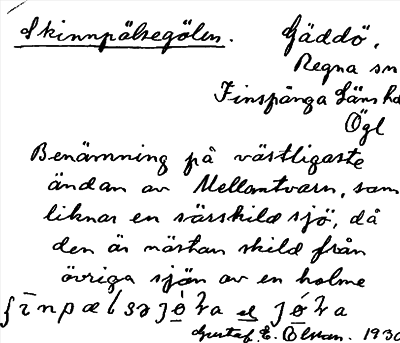 Skinnpälsegölen. Gäddö,
Regna sn
Finspånga läns hd
Ögl
Benämning på västligaste
ändan av Mellantvarn, som
liknar en särskild sjö, då
den är nästan skild från
övriga sjön av en holme
Gustaf E. Olsson. 1930